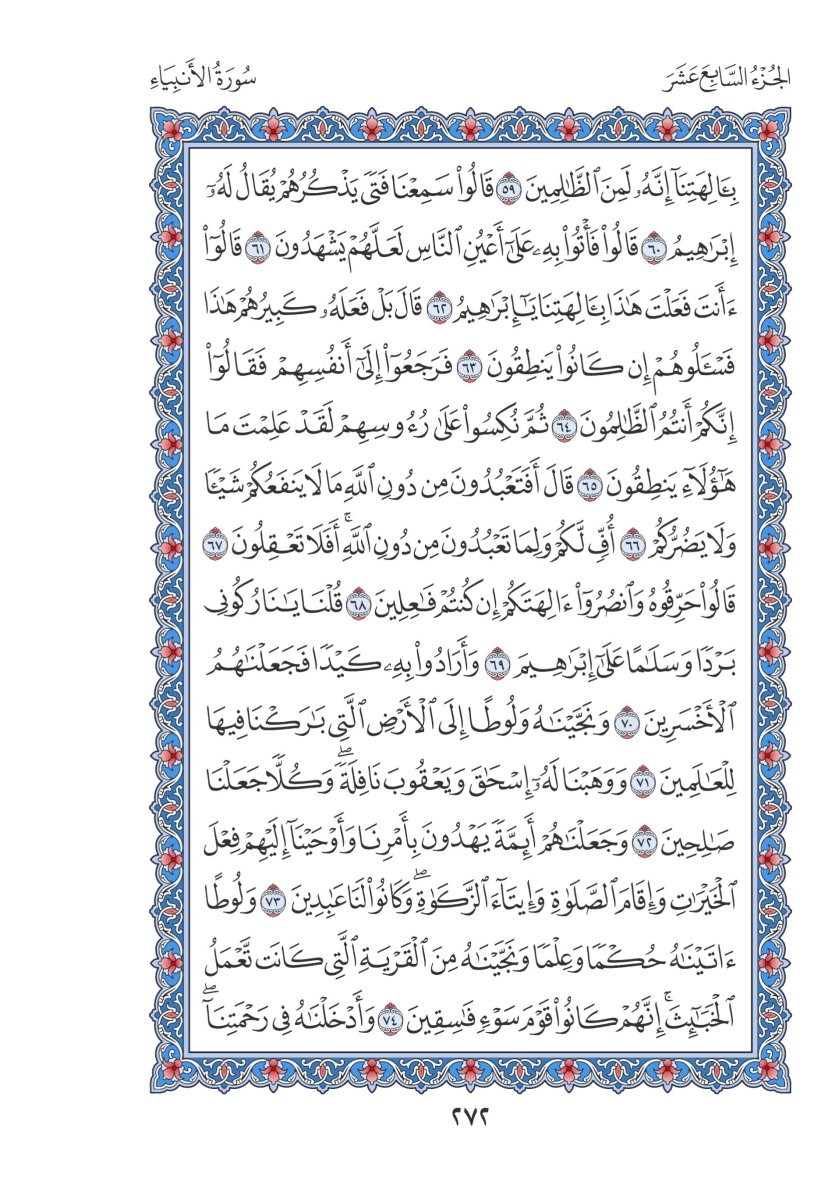 الجُزْءُ السَّابِعَ عَشَرَ
سُورَةُ الأَنبِيَاءِ
بِـَٔالِهَتِنَآ إِنَّهُۥ لَمِنَ ٱلظَّٰلِمِينَ ٥٩ قَالُوا۟ سَمِعْنَا فَتًى يَذْكُرُهُمْ يُقَالُ لَهُۥٓ
إِبْرَٰهِيمُ ٦٠ قَالُوا۟ فَأْتُوا۟ بِهِۦ عَلَىٰٓ أَعْيُنِ ٱلنَّاسِ لَعَلَّهُمْ يَشْهَدُونَ ٦١ قَالُوٓا۟
ءَأَنتَ فَعَلْتَ هَٰذَا بِـَٔالِهَتِنَا يَٰٓإِبْرَٰهِيمُ ٦٢ قَالَ بَلْ فَعَلَهُۥ كَبِيرُهُمْ هَٰذَا
فَسْـَٔلُوهُمْ إِن كَانُوا۟ يَنطِقُونَ ٦٣ فَرَجَعُوٓا۟ إِلَىٰٓ أَنفُسِهِمْ فَقَالُوٓا۟
إِنَّكُمْ أَنتُمُ ٱلظَّٰلِمُونَ ٦٤ ثُمَّ نُكِسُوا۟ عَلَىٰ رُءُوسِهِمْ لَقَدْ عَلِمْتَ مَا
هَٰٓؤُلَآءِ يَنطِقُونَ ٦٥ قَالَ أَفَتَعْبُدُونَ مِن دُونِ ٱللَّهِ مَا لَا يَنفَعُكُمْ شَيْـًٔا
وَلَا يَضُرُّكُمْ ٦٦ أُفٍّ لَّكُمْ وَلِمَا تَعْبُدُونَ مِن دُونِ ٱللَّهِ ۚ أَفَلَا تَعْقِلُونَ ٦٧
قَالُوا۟ حَرِّقُوهُ وَٱنصُرُوٓا۟ ءَالِهَتَكُمْ إِن كُنتُمْ فَٰعِلِينَ ٦٨ قُلْنَا يَٰنَارُ كُونِى
بَرْدًا وَسَلَٰمًا عَلَىٰٓ إِبْرَٰهِيمَ ٦٩ وَأَرَادُوا۟ بِهِۦ كَيْدًا فَجَعَلْنَٰهُمُ
ٱلْأَخْسَرِينَ ٧٠ وَنَجَّيْنَٰهُ وَلُوطًا إِلَى ٱلْأَرْضِ ٱلَّتِى بَٰرَكْنَا فِيهَا
لِلْعَٰلَمِينَ ٧١ وَوَهَبْنَا لَهُۥٓ إِسْحَٰقَ وَيَعْقُوبَ نَافِلَةً ۖ وَكُلًّا جَعَلْنَا
صَٰلِحِينَ ٧٢ وَجَعَلْنَٰهُمْ أَئِمَّةً يَهْدُونَ بِأَمْرِنَا وَأَوْحَيْنَآ إِلَيْهِمْ فِعْلَ
ٱلْخَيْرَٰتِ وَإِقَامَ ٱلصَّلَوٰةِ وَإِيتَآءَ ٱلزَّكَوٰةِ ۖ وَكَانُوا۟ لَنَا عَٰبِدِينَ ٧٣ وَلُوطًا
ءَاتَيْنَٰهُ حُكْمًا وَعِلْمًا وَنَجَّيْنَٰهُ مِنَ ٱلْقَرْيَةِ ٱلَّتِى كَانَت تَّعْمَلُ
ٱلْخَبَٰٓئِثَ ۚ إِنَّهُمْ كَانُوا۟ قَوْمَ سَوْءٍ فَٰسِقِينَ ٧٤ وَأَدْخَلْنَٰهُ فِى رَحْمَتِنَآ ۖ
٢٧٢